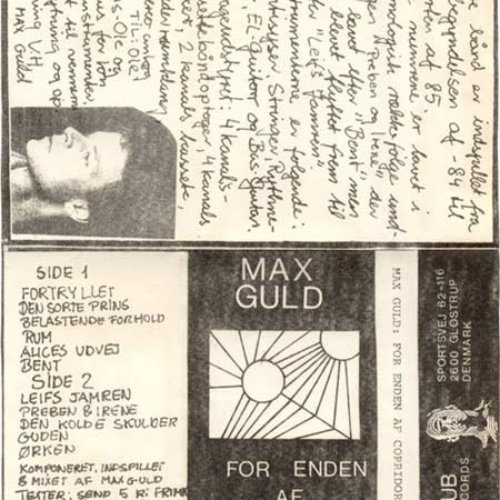 bånd er indspillet fra
begyndelsen af -84 til
af 85.
numrene er lavet i
rækkefølge und-
"Preben og Irene" der
lavet efter "Bent" men
blevet flyttet frem til
"Leifs Jamren"
er følgende:
Stringer, Rythme-
El-guitar og Bas guitar.
4 kanals-
4 kanals
2 kanals kassette,
TIL: OLE!
Ole og
for lån
MAX Guld
SIDE 1
FORTRYLLET
DEN SORTE PRINS
BELASTENDE FORHOLD
RUM
ALICES UDVEJ
BENT
SIDE 2
LEIFS JAMREN
PREBEN & IRENE
DEN KOLDE SKULDER
GUDEN
ØRKEN
KOMPONERET, INDSPILLET
& MIXET AF MAX GULD
TEXTER: SEND 5 KR. FRIM
MAX
GULD
FOR ENDEN
AF
MAX GULD: FOR ENDEN AF CORRIDO
SPORTSVEJ 62-116
2600 GLOSTRUP
DENMARK
UB
CORDS